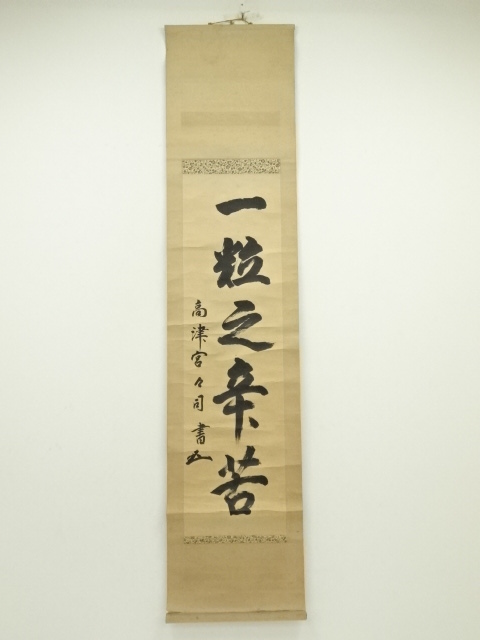 一粒之辛苦
高津宮々司書